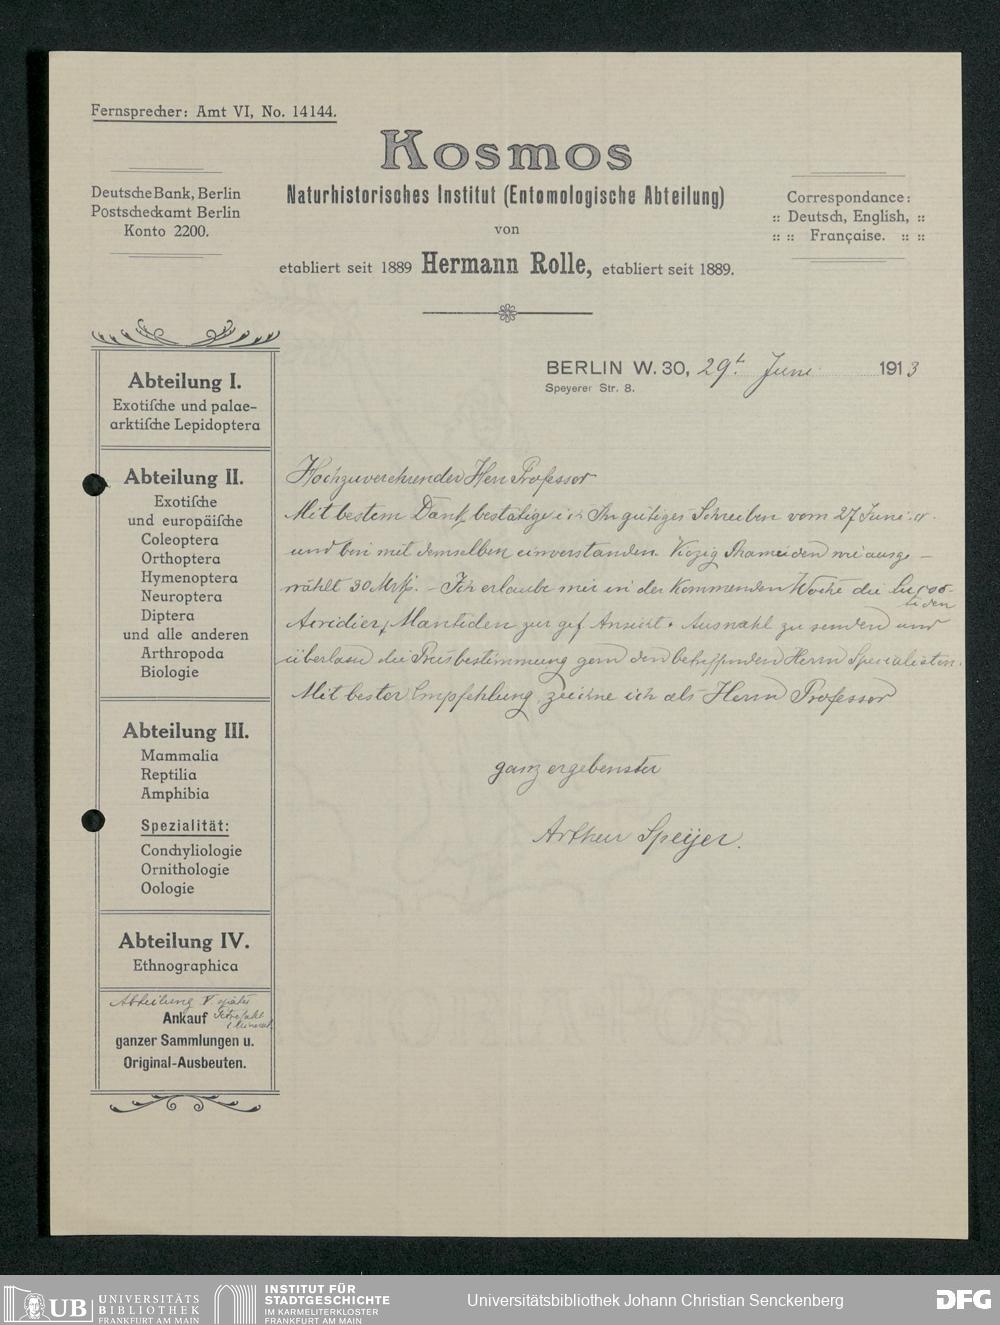 Fernsprecher: Amt VI, No. 14144.
Kosmos
Naturhistorisches Institut (Entomologische Abteilung)
von
etabliert seit 1889 Hermann Rolle, etabliert seit 1889.
Deutsche Bank, Berlin
Postscheckamt Berlin
Konto 2200.
Correspondance:
:: Deutsch, English, ::
:: :: Française. :: ::
BERLIN W. 30, 29t. Juni 1913
Speyerer Str. 8.
Abteilung I.
Exotiſche und palae-
arktiſche Lepidoptera
Abteilung II.
Exotiſche
und europäiſche
Coleoptera
Orthoptera
Hymenoptera
Neuroptera
Diptera
und alle anderen
Arthropoda
Biologie
Abteilung III.
Mammalia
Reptilia
Amphibia
Spezialität:
Conchyliologie
Ornithologie
Oologie
Abteilung IV.
Ethnographica
Abtheilung V. später
Ankauf
ganzer Sammlungen u.
Original-Ausbeuten.
Hochzuverehrender Herr Professor
Mit bestem Dank bestätige ich Ihr gütiges Schreiben vom 27 Juni
und bin mit demselben einverstanden. Phasmiden wie ausge-
wählt 30 Mrk. – Ich erlaube mir in der kommenden Woche die
Acridier, Mantiden zur gef Ansicht + Auswahl zu senden und
überlasse die Preisbestimmung gern den betreffenden Herrn Specialisten.
Mit bester Empfehlung zeichne ich als Herrn Professor
ganz ergebenster
Arthur Speyer.
UB UNIVERSITÄTS
BIBLIOTHEK
FRANKFURT AM MAIN
INSTITUT FÜR
STADTGESCHICHTE
IM KARMELITERKLOSTER
FRANKFURT AM MAIN
Universitätsbibliothek Johann Christian Senckenberg
DFG